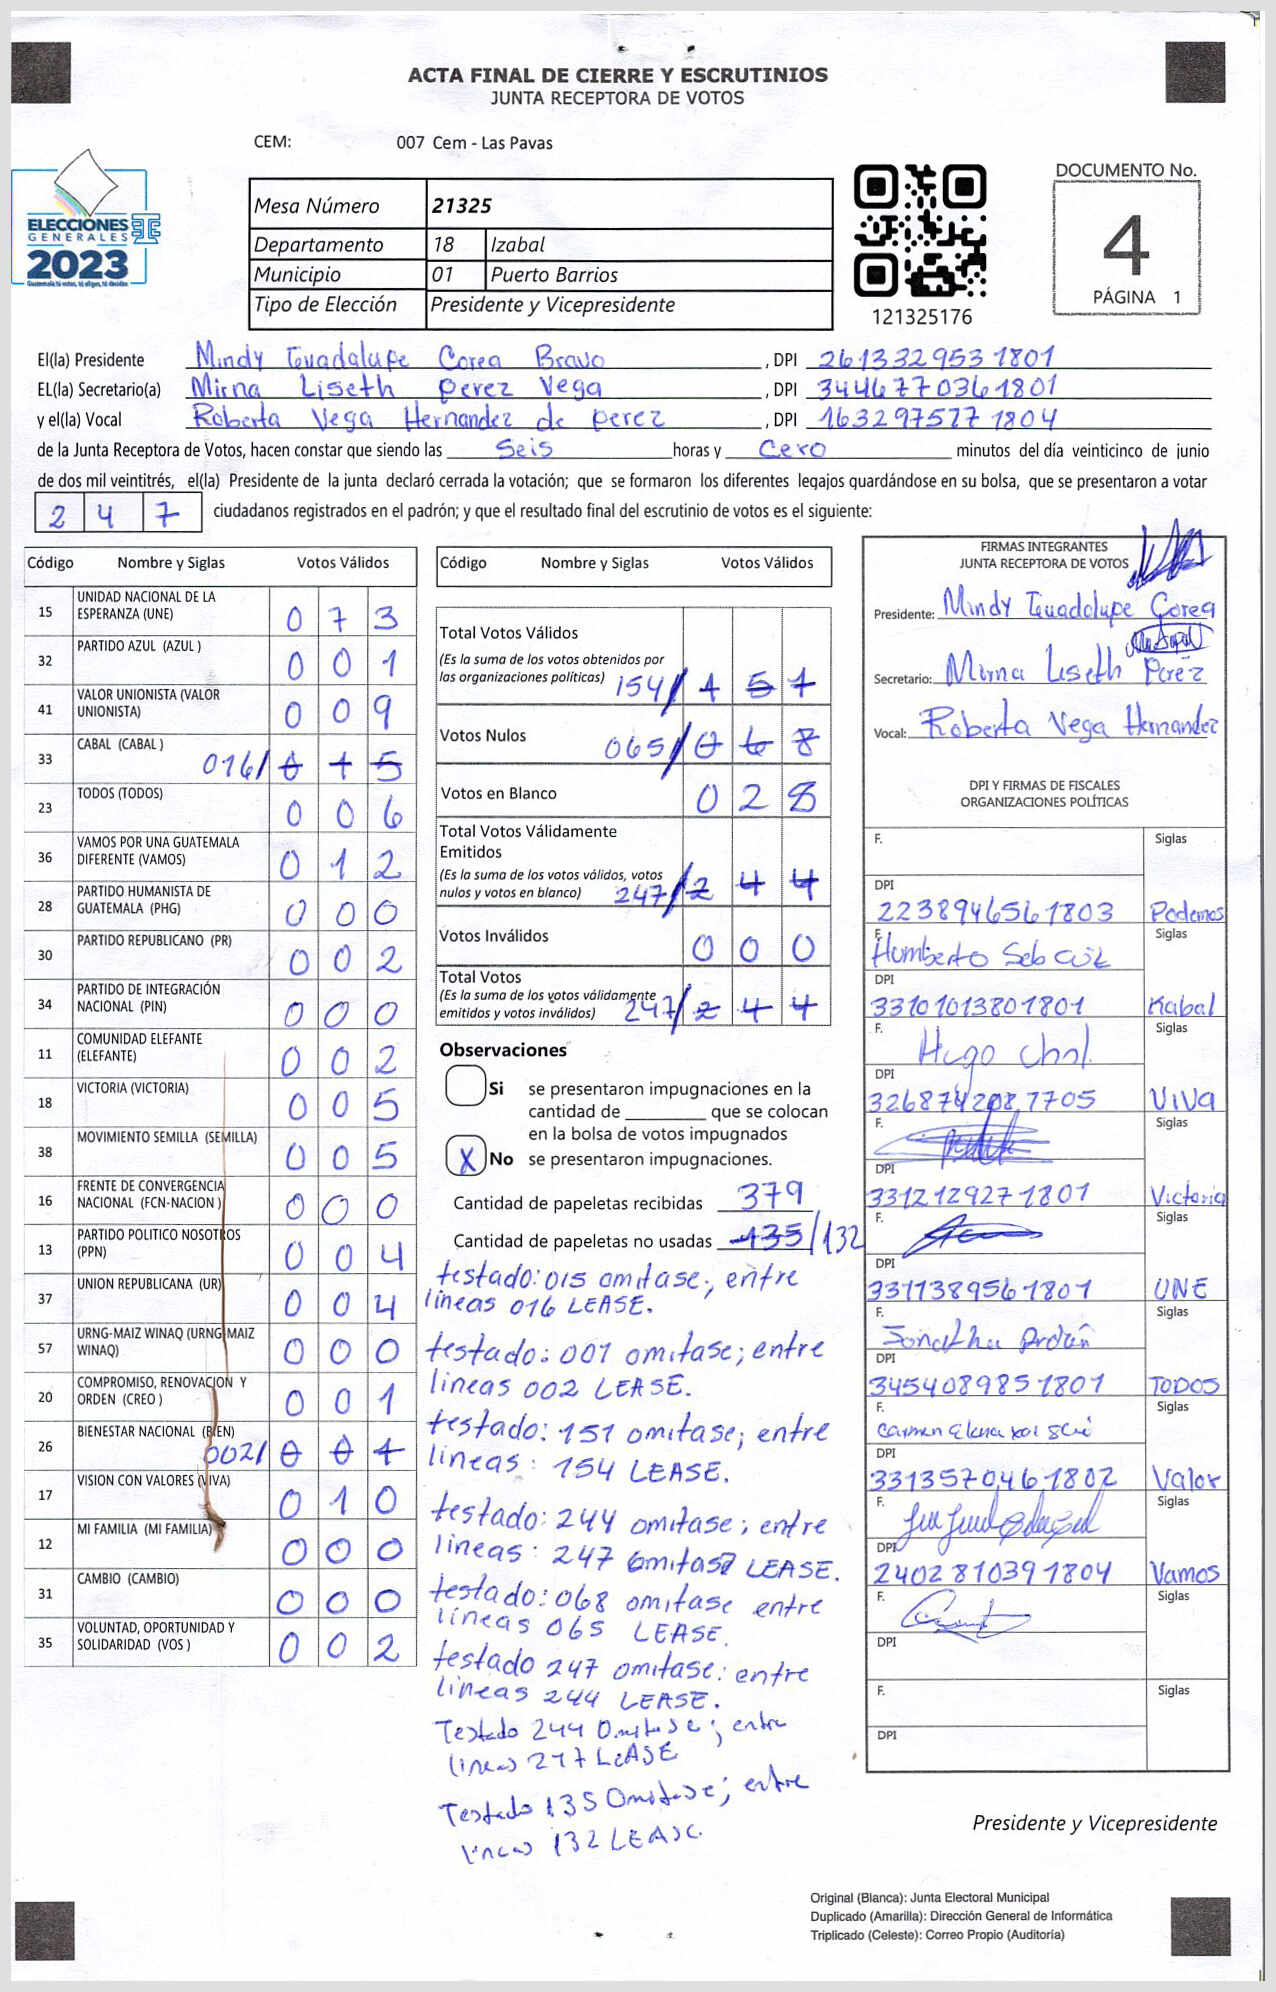 ACTA FINAL DE CIERRE Y ESCRUTINIOS
JUNTA RECEPTORA DE VOTOS
CEM: 007 Cem - Las Pavas
ELECCIONES
GENERALES
2023
Guatemala tú votas, tú eliges, tú decides
Mesa Número 21325
Departamento 18 Izabal
Municipio 01 Puerto Barrios
Tipo de Elección Presidente y Vicepresidente
121325176
DOCUMENTO No.
4
PÁGINA 1
El(la) Presidente Mindy Guadalupe Corea Bravo, DPI 2613329531801
EL(la) Secretario(a) Mirna Liseth perez Vega, DPI 3446770361801
y el(la) Vocal Roberta Vega Hernandez de perez, DPI 1632975771804
de la Junta Receptora de Votos, hacen constar que siendo las Seis horas y Cero minutos del día veinticinco de junio
de dos mil veintitrés, el(la) Presidente de la junta declaró cerrada la votación; que se formaron los diferentes legajos guardándose en su bolsa, que se presentaron a votar
2 4 7 ciudadanos registrados en el padrón; y que el resultado final del escrutinio de votos es el siguiente:
Código Nombre y Siglas Votos Válidos
15 UNIDAD NACIONAL DE LA ESPERANZA (UNE) 0 7 3
32 PARTIDO AZUL (AZUL ) 0 0 1
41 VALOR UNIONISTA (VALOR UNIONISTA) 0 0 9
33 CABAL (CABAL ) 016/ 0 1 5
23 TODOS (TODOS) 0 0 6
36 VAMOS POR UNA GUATEMALA DIFERENTE (VAMOS) 0 1 2
28 PARTIDO HUMANISTA DE GUATEMALA (PHG) 0 0 0
30 PARTIDO REPUBLICANO (PR) 0 0 2
34 PARTIDO DE INTEGRACIÓN NACIONAL (PIN) 0 0 0
11 COMUNIDAD ELEFANTE (ELEFANTE) 0 0 2
18 VICTORIA (VICTORIA) 0 0 5
38 MOVIMIENTO SEMILLA (SEMILLA) 0 0 5
16 FRENTE DE CONVERGENCIA NACIONAL (FCN-NACION ) 0 0 0
13 PARTIDO POLITICO NOSOTROS (PPN) 0 0 4
37 UNION REPUBLICANA (UR) 0 0 4
57 URNG-MAIZ WINAQ (URNG-MAIZ WINAQ) 0 0 0
20 COMPROMISO, RENOVACION Y ORDEN (CREO ) 0 0 1
26 BIENESTAR NACIONAL (BIEN) 002/ 0 0 1
17 VISION CON VALORES (VIVA) 0 1 0
12 MI FAMILIA (MI FAMILIA) 0 0 0
31 CAMBIO (CAMBIO) 0 0 0
35 VOLUNTAD, OPORTUNIDAD Y SOLIDARIDAD (VOS ) 0 0 2
Código Nombre y Siglas Votos Válidos
Total Votos Válidos
(Es la suma de los votos obtenidos por
las organizaciones políticas) 154/ 1 5 1
Votos Nulos 065/ 0 6 8
Votos en Blanco 0 2 8
Total Votos Válidamente
Emitidos
(Es la suma de los votos válidos, votos
nulos y votos en blanco) 247/ 2 4 4
Votos Inválidos 0 0 0
Total Votos
(Es la suma de los votos válidamente
emitidos y votos inválidos) 247/ 2 4 4
Observaciones
Si se presentaron impugnaciones en la
cantidad de ________ que se colocan
en la bolsa de votos impugnados
X No se presentaron impugnaciones.
Cantidad de papeletas recibidas 379
Cantidad de papeletas no usadas 135/132
testado: 015 omitase; entre
lineas 016 LEASE.
testado: 001 omitase; entre
lineas 002 LEASE.
testado: 151 omitase; entre
lineas: 154 LEASE.
testado: 244 omitase; entre
lineas: 247 omitase LEASE.
testado: 068 omitase entre
líneas 065 LEASE.
testado 247 omitase: entre
lineas 244 LEASE.
Testado 244 Omitase; entre
lineas 247 LEASE
Testado 135 Omitase; entre
lineas 132 LEASE.
FIRMAS INTEGRANTES
JUNTA RECEPTORA DE VOTOS
Presidente: Mindy Guadalupe Corea
Secretario: Mirna Liseth Perez
Vocal: Roberta Vega Hernandez
DPI Y FIRMAS DE FISCALES
ORGANIZACIONES POLÍTICAS
F. Siglas
DPI 2238946561803 Podemos
F. Humberto Seb Siglas
DPI 33101013801801 Kabal
F. Hugo Siglas
DPI 3268742087705 VIVA
F. Siglas
DPI 3312129271801 Victoria
F. Siglas
DPI 3311389561801 UNE
F. Siglas
DPI 3454089851801 TODOS
F. Carmen Elena Siglas
DPI 3313570461802 Valor
F. Siglas
DPI 2402810391804 Vamos
F. Siglas
DPI
F. Siglas
DPI
Presidente y Vicepresidente
Original (Blanca): Junta Electoral Municipal
Duplicado (Amarilla): Dirección General de Informática
Triplicado (Celeste): Correo Propio (Auditoría)